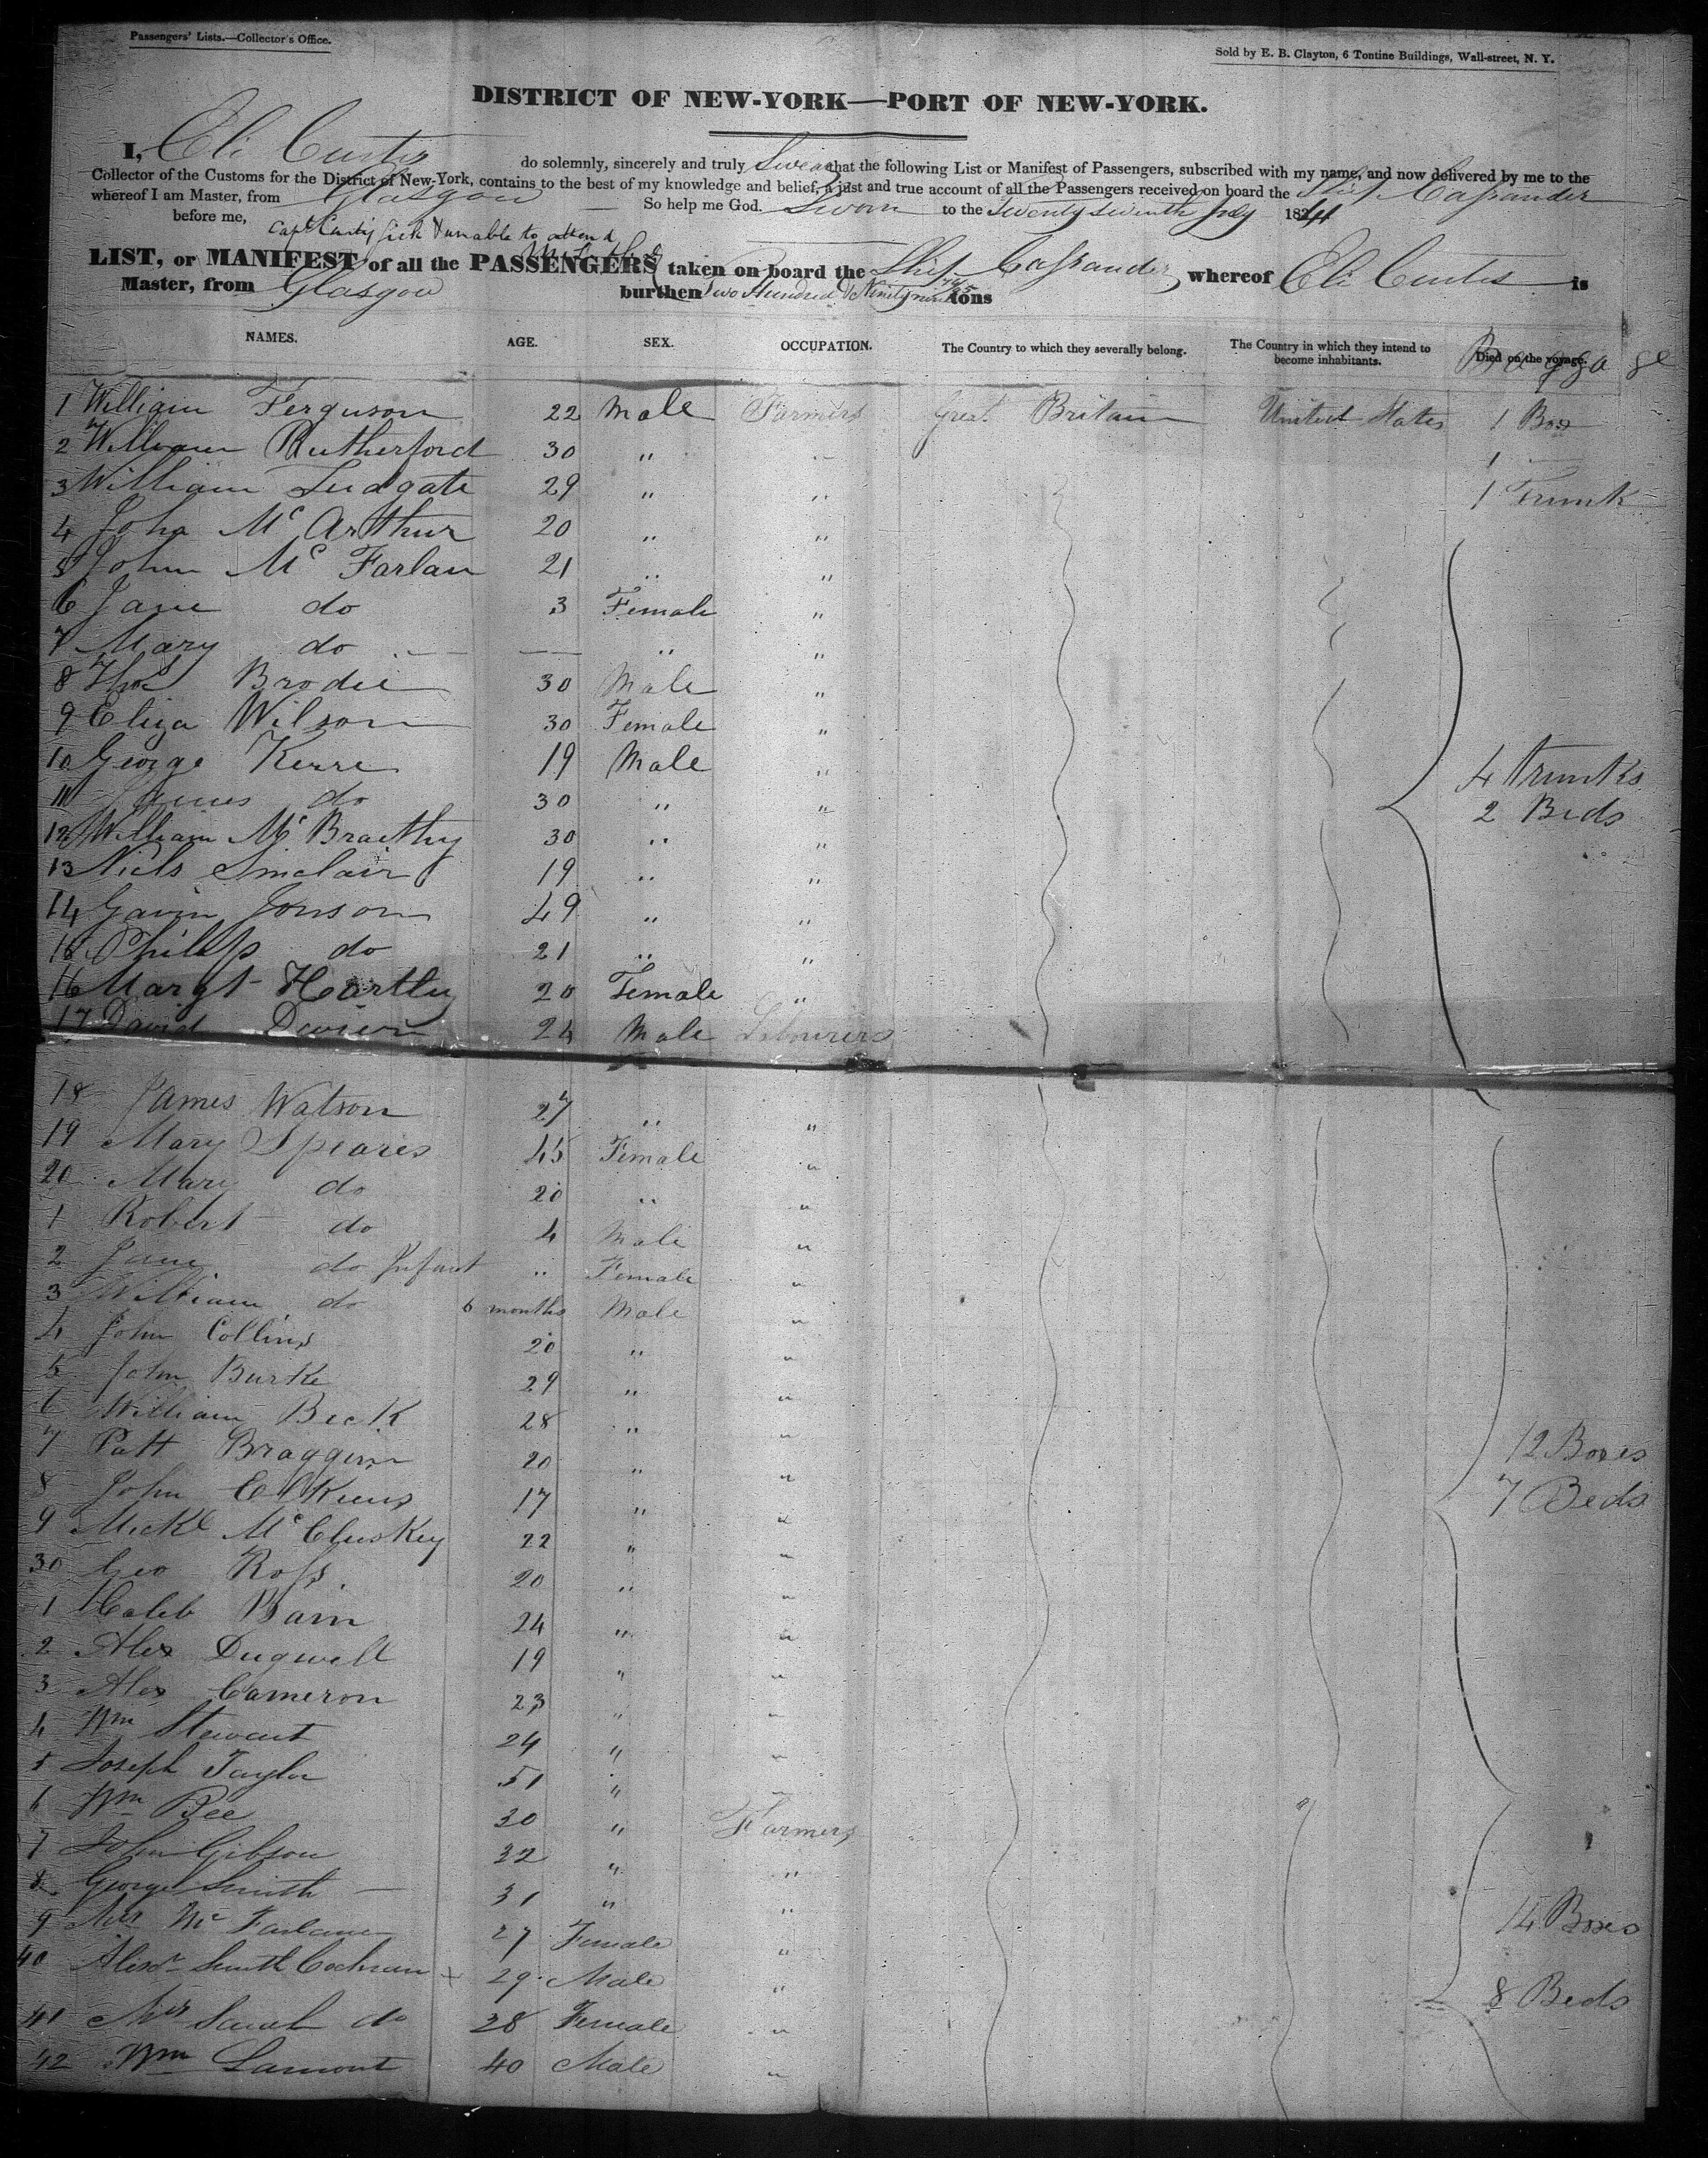 Passengers' Lists.—Collector's Office.
Sold by E. B. Clayton, 6 Tontine Buildings, Wall-street, N. Y.
DISTRICT OF NEW-YORK—PORT OF NEW-YORK.
I, Eli Curtis do solemnly, sincerely and truly Swear that the following List or Manifest of Passengers, subscribed with my name, and now delivered by me to the
Collector of the Customs for the District of New-York, contains to the best of my knowledge and belief, a just and true account of all the Passengers received on board the Ship Cassander
whereof I am Master, from Glasgow So help me God. Sworn to the Twenty seventh July 1841
before me, Capt Curtis sick & unable to attend
LIST, or MANIFEST of all the PASSENGERS taken on board the Ship Cassander whereof Eli Curtis is
Master, from Glasgow burthen Two Hundred & Ninety nine tons
NAMES. AGE. SEX. OCCUPATION. The Country to which they severally belong. The Country in which they intend to become inhabitants. Died on the voyage. Baggage
1 William Ferguson 22 Male Farmers Great Britain United States 1 Box
2 William Rutherford 30 " " 1 "
3 William Ludgate 29 " " 1 Trunk
4 John Mc Arthur 20 " "
5 John Mc Farlan 21 " "
6 Jane do 3 Female "
7 Mary do — " "
8 Thos Brodie 30 Male "
9 Eliza Wilson 30 Female "
10 George Kerre 19 Male " 4 Trunks
11 James do 30 " " 2 Beds
12 William Mc 30 " "
13 Niels Sinclair 19 " "
14 Gavin Jonson 49 " "
15 Philip do 21 " "
16 Margt Hartley 20 Female "
17 David 24 Male Labourers
18 James Watson 27 " "
19 Mary Speares 45 Female "
20 Mary do 20 " "
1 Robert do 4 Male "
2 Jane do Infant " Female "
3 William do 6 months Male "
4 John Collins 20 " "
5 John Burke 29 " "
6 William Beck 28 " " 12 Boxes
7 Patt Braggin 20 " "
8 John 17 " " 7 Beds
9 Mickl Mc Cluskey 22 " "
30 Geo Ross 20 " "
1 Caleb Bain 24 " "
2 Alex Dugwell 19 " "
3 Alex Cameron 23 " "
4 Wm Stewart 24 " "
5 Joseph Taylor 51 " "
6 Wm Bee 30 " Farmers
7 John Gibson 32 " "
8 George Smith — 31 " "
9 Mrs Mc Farlane 27 Female " 14 Boxes
40 Alexr Smith Cochran + 29 Male "
41 Mrs Sarah do 28 Female " 8 Beds
42 Wm Lamont 40 Male "